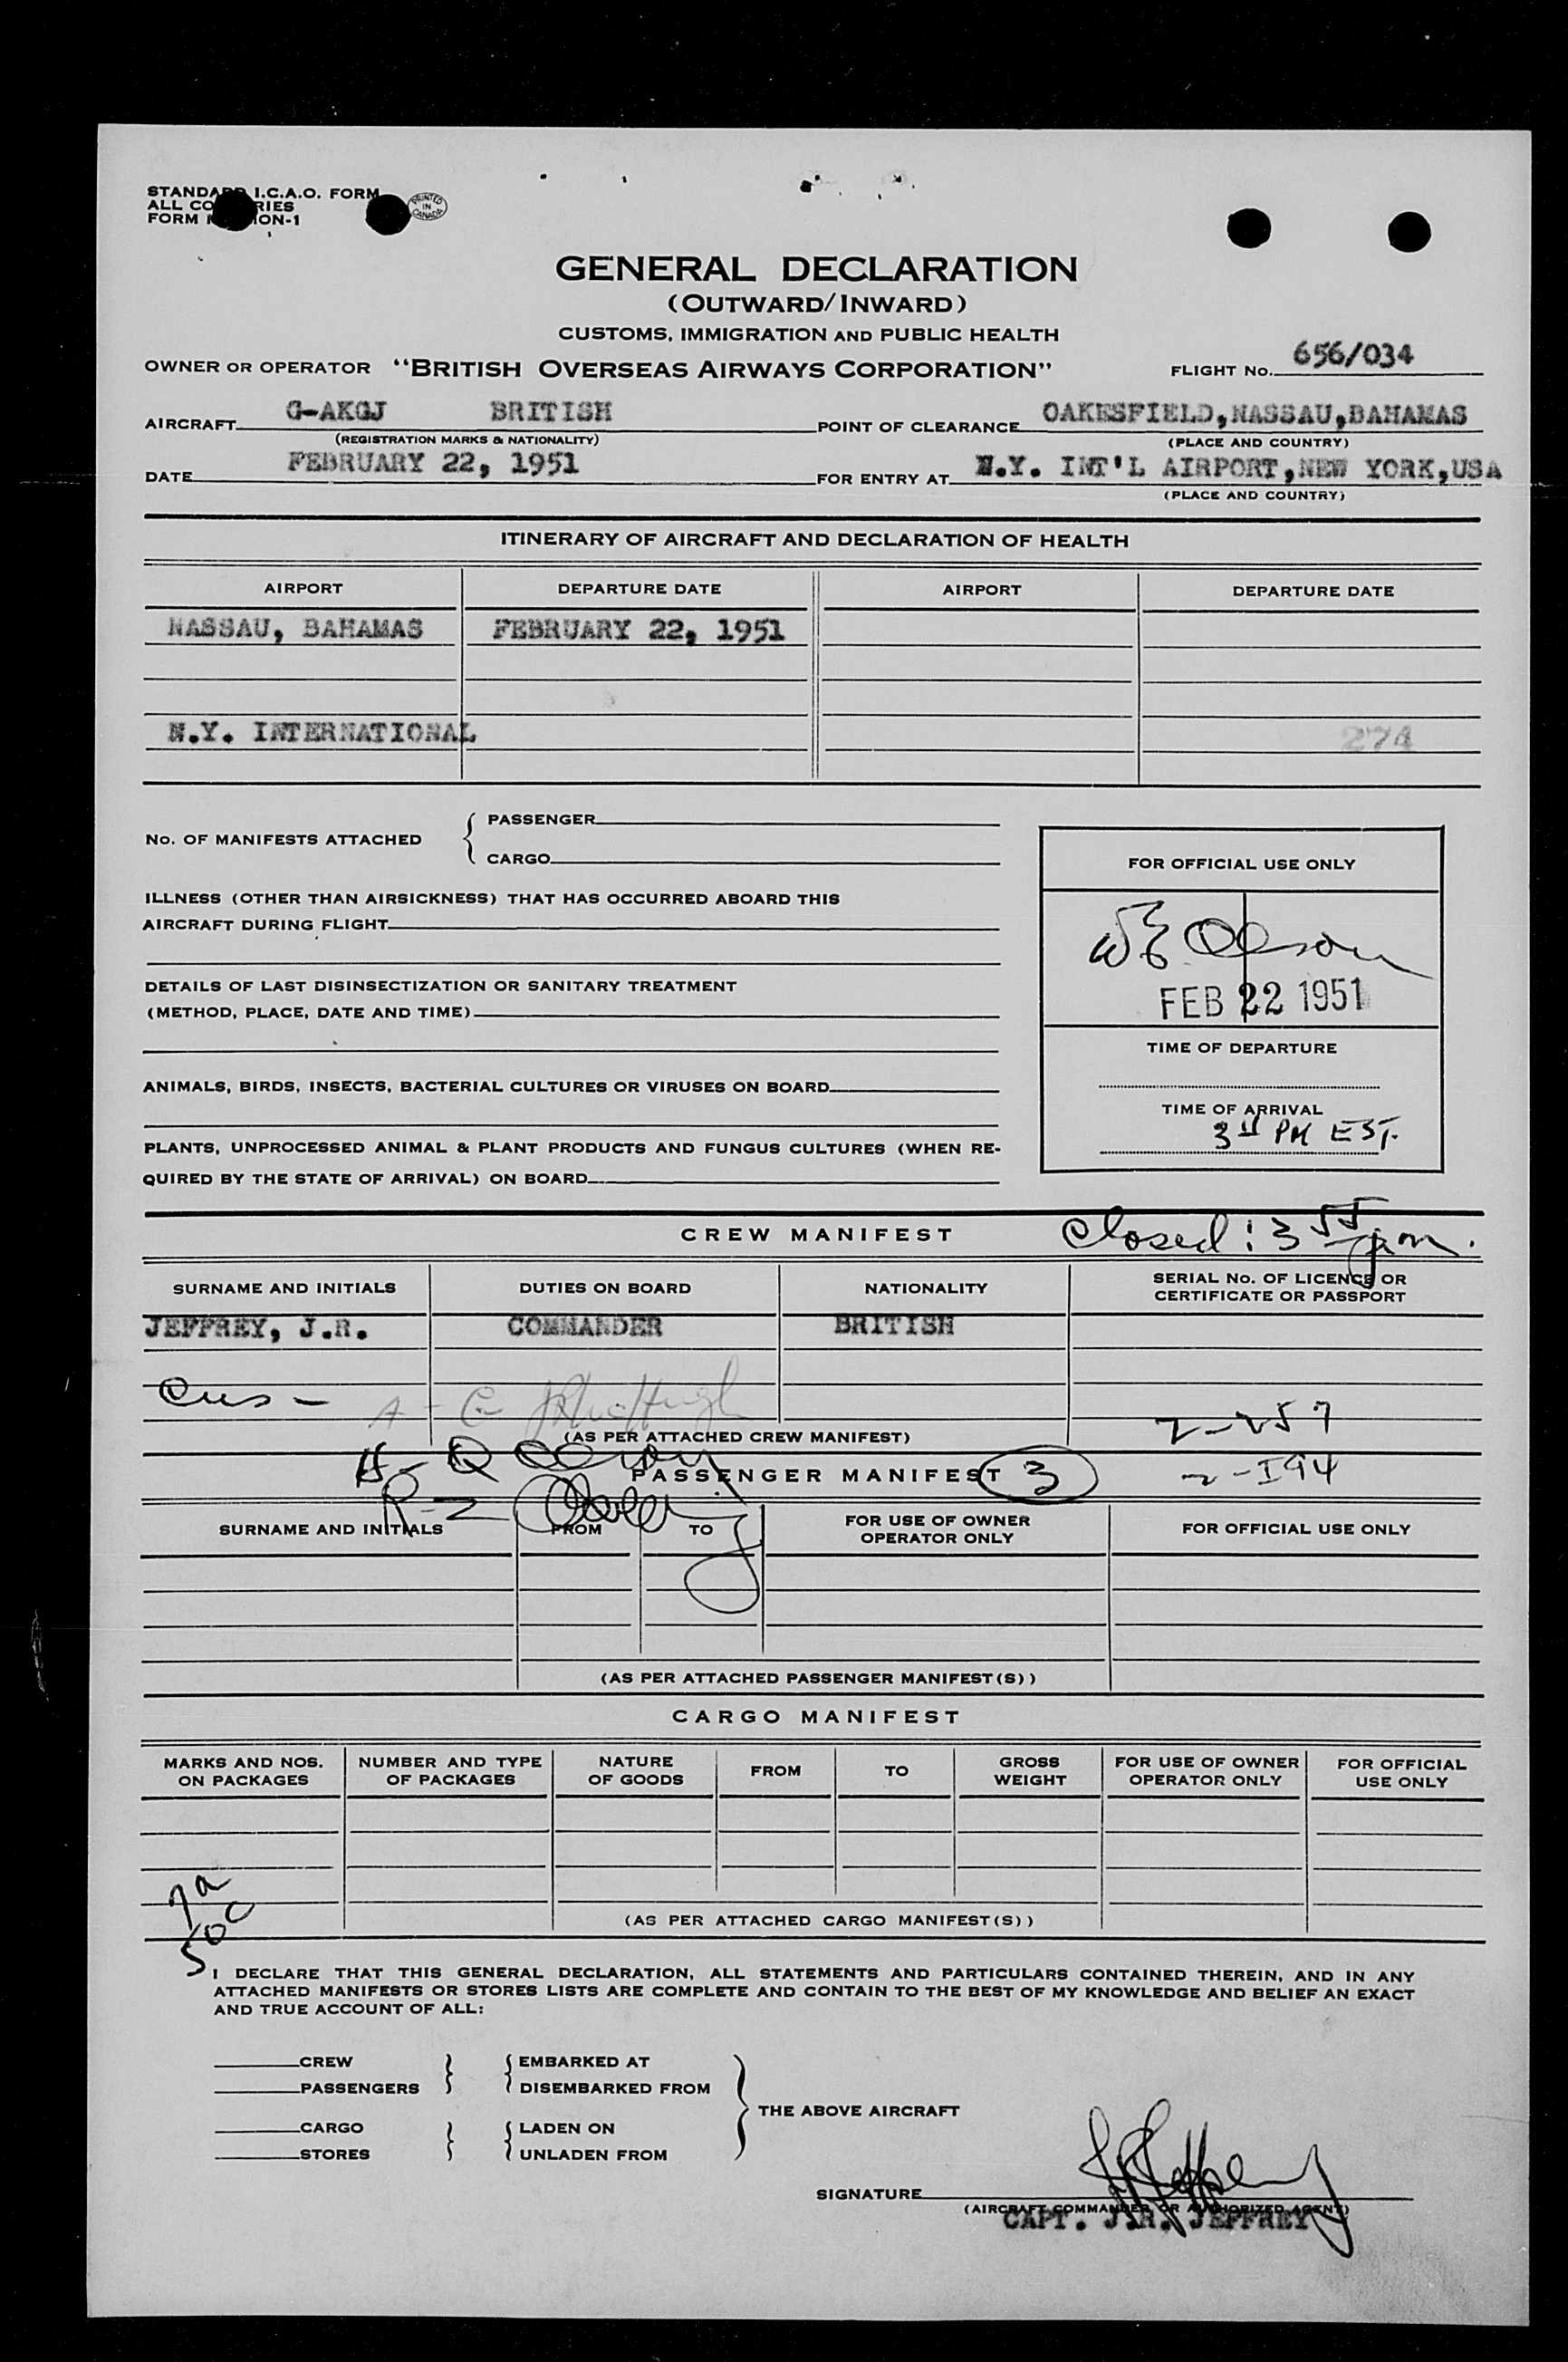 STANDARD I.C.A.O. FORM
ALL COUNTRIES
FORM ION-1
PRINTED IN CANADA
GENERAL DECLARATION
(OUTWARD/INWARD)
CUSTOMS, IMMIGRATION AND PUBLIC HEALTH
OWNER OR OPERATOR "BRITISH OVERSEAS AIRWAYS CORPORATION" FLIGHT No. 656/034
AIRCRAFT G-AKGJ BRITISH POINT OF CLEARANCE OAKESFIELD,NASSAU,BAHAMAS
(REGISTRATION MARKS & NATIONALITY) (PLACE AND COUNTRY)
DATE FEBRUARY 22, 1951 FOR ENTRY AT N.Y. INT'L AIRPORT,NEW YORK,USA
(PLACE AND COUNTRY)
ITINERARY OF AIRCRAFT AND DECLARATION OF HEALTH
AIRPORT DEPARTURE DATE AIRPORT DEPARTURE DATE
NASSAU, BAHAMAS FEBRUARY 22, 1951
N.Y. INTERNATIONAL 274
No. OF MANIFESTS ATTACHED { PASSENGER
CARGO
ILLNESS (OTHER THAN AIRSICKNESS) THAT HAS OCCURRED ABOARD THIS
AIRCRAFT DURING FLIGHT
DETAILS OF LAST DISINSECTIZATION OR SANITARY TREATMENT
(METHOD, PLACE, DATE AND TIME)
ANIMALS, BIRDS, INSECTS, BACTERIAL CULTURES OR VIRUSES ON BOARD
PLANTS, UNPROCESSED ANIMAL & PLANT PRODUCTS AND FUNGUS CULTURES (WHEN RE-
QUIRED BY THE STATE OF ARRIVAL) ON BOARD
FOR OFFICIAL USE ONLY
Olson
FEB 22 1951
TIME OF DEPARTURE
TIME OF ARRIVAL
PM EST.
CREW MANIFEST Closed: 3 55 pm.
SURNAME AND INITIALS DUTIES ON BOARD NATIONALITY SERIAL No. OF LICENCE OR
CERTIFICATE OR PASSPORT
JEFFREY, J.R. COMMANDER BRITISH
Cus -
(AS PER ATTACHED CREW MANIFEST)
PASSENGER MANIFEST 3
SURNAME AND INITIALS FROM TO FOR USE OF OWNER
OPERATOR ONLY FOR OFFICIAL USE ONLY
(AS PER ATTACHED PASSENGER MANIFEST(S))
CARGO MANIFEST
MARKS AND NOS.
ON PACKAGES NUMBER AND TYPE
OF PACKAGES NATURE
OF GOODS FROM TO GROSS
WEIGHT FOR USE OF OWNER
OPERATOR ONLY FOR OFFICIAL
USE ONLY
(AS PER ATTACHED CARGO MANIFEST(S))
I DECLARE THAT THIS GENERAL DECLARATION, ALL STATEMENTS AND PARTICULARS CONTAINED THEREIN, AND IN ANY
ATTACHED MANIFESTS OR STORES LISTS ARE COMPLETE AND CONTAIN TO THE BEST OF MY KNOWLEDGE AND BELIEF AN EXACT
AND TRUE ACCOUNT OF ALL:
CREW } { EMBARKED AT
PASSENGERS DISEMBARKED FROM
THE ABOVE AIRCRAFT
CARGO } { LADEN ON
STORES UNLADEN FROM
SIGNATURE
(AIRCRAFT COMMANDER OR AUTHORIZED AGENT)
CAPT. J.R. JEFFREY